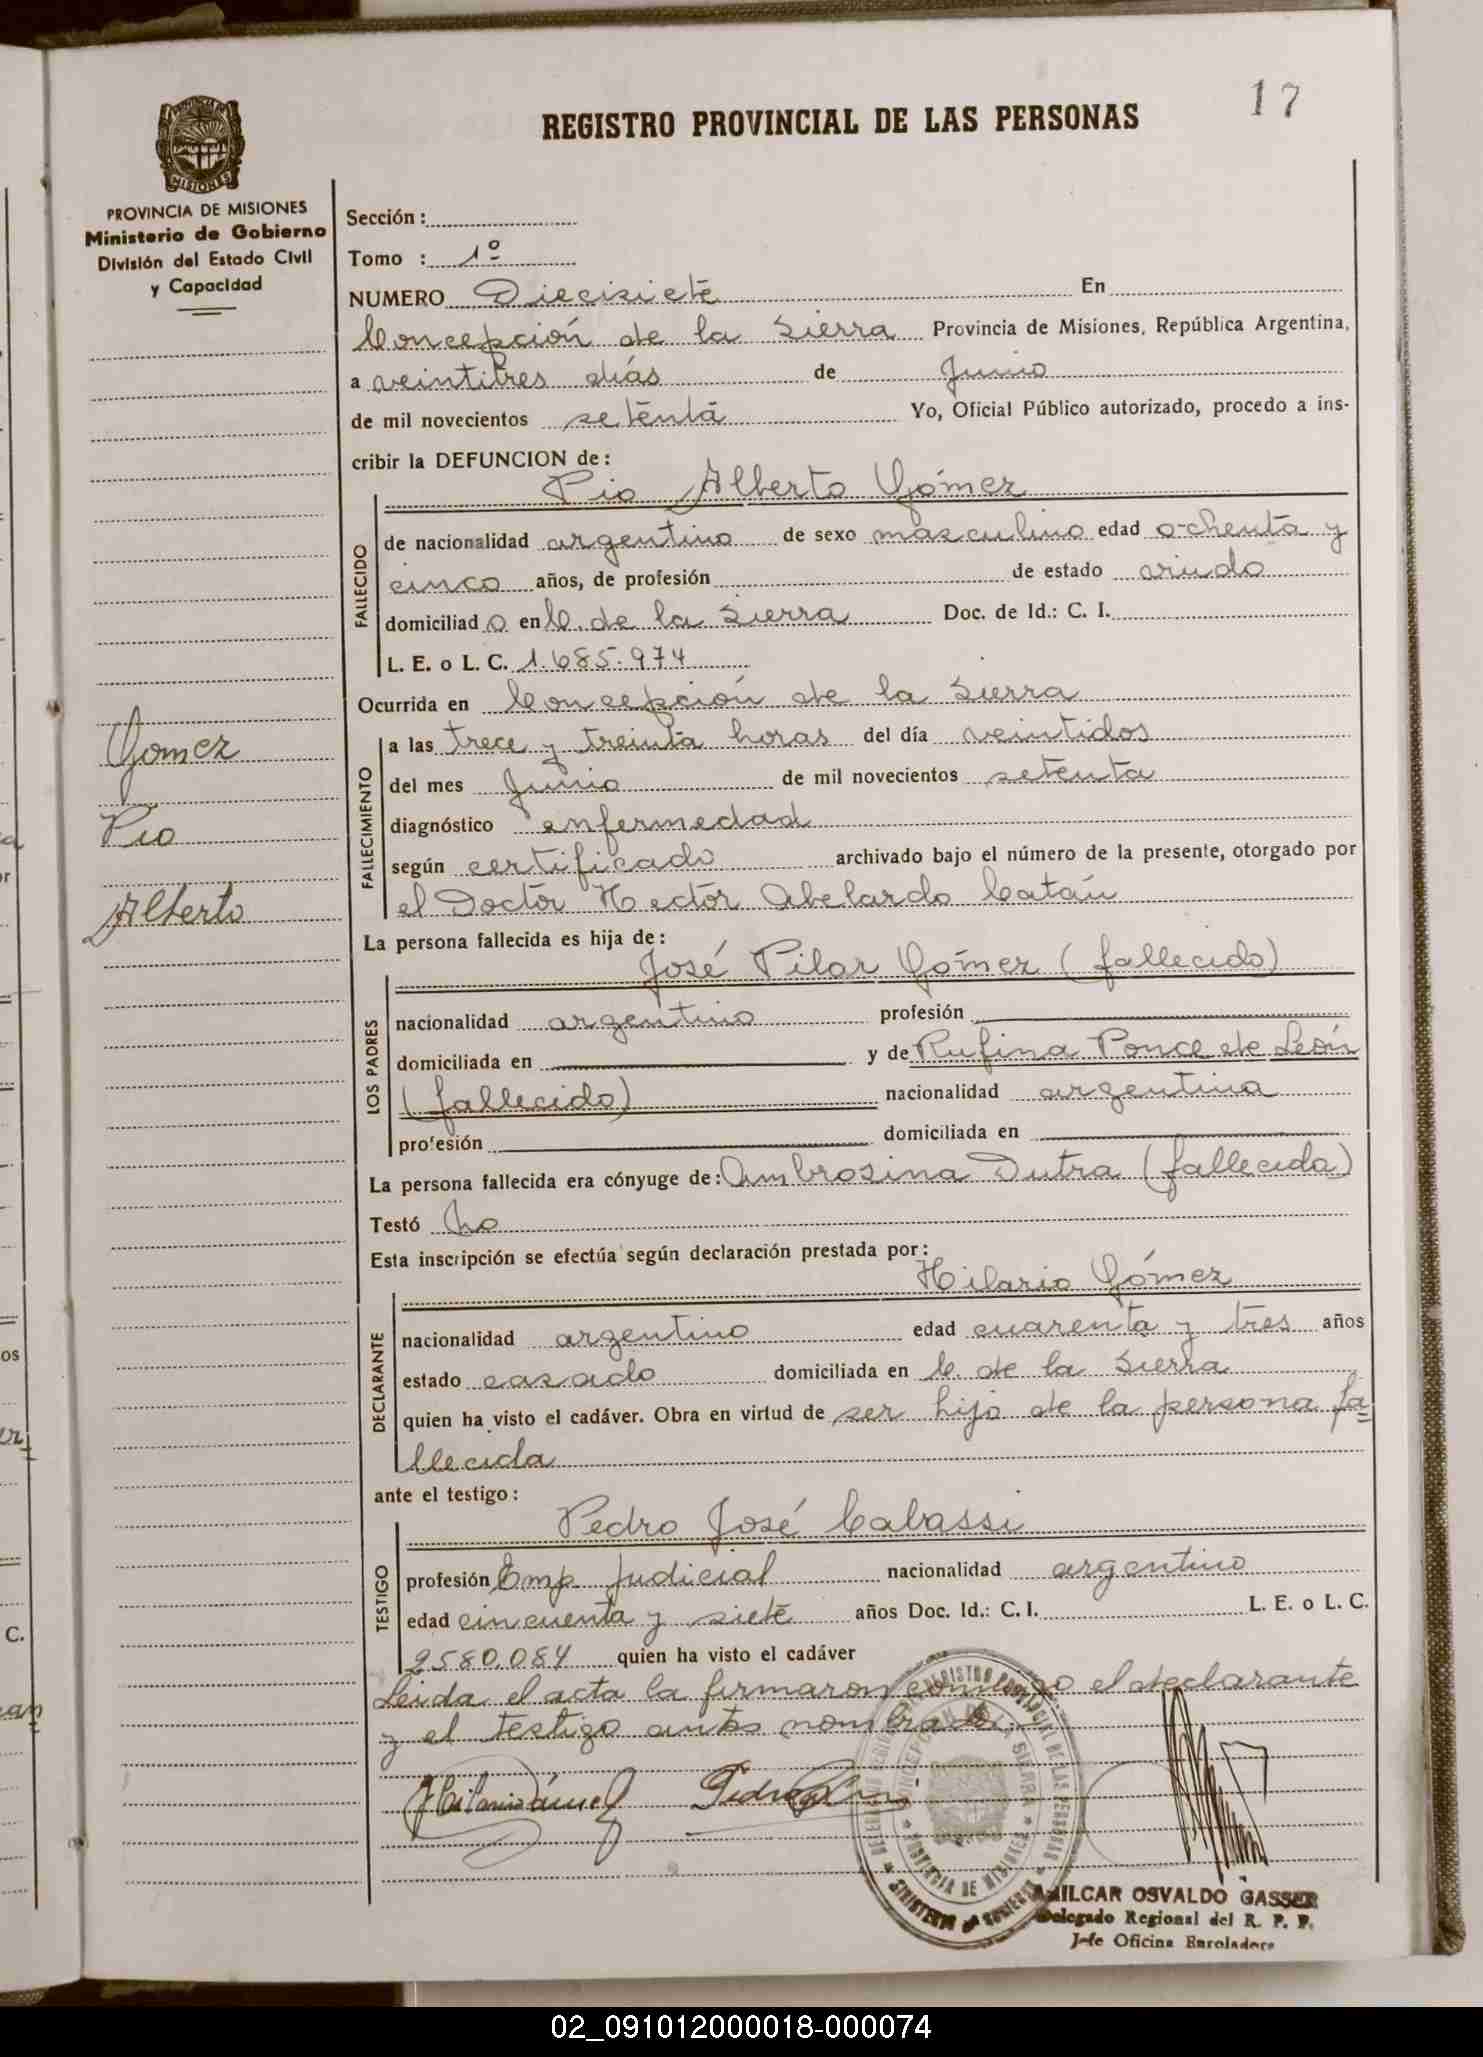 17
REGISTRO PROVINCIAL DE LAS PERSONAS
PROVINCIA DE MISIONES
Ministerio de Gobierno
División del Estado Civil
y Capacidad
Sección:
Tomo : 1º
NUMERO Diecisiete En
Concepción de la Sierra Provincia de Misiones, República Argentina,
a veintitres días de Junio
de mil novecientos setenta Yo, Oficial Público autorizado, procedo a ins-
cribir la DEFUNCION de:
Pio Alberto Gómez
FALLECIDO
de nacionalidad argentino de sexo masculino edad ochenta y
cinco años, de profesión de estado viudo
domiciliado en C. de la Sierra Doc. de Id.: C. I.
L. E. o L. C. 1.685.974
Ocurrida en Concepción de la Sierra
FALLECIMIENTO
a las trece y treinta horas del día veintidos
del mes Junio de mil novecientos setenta
diagnóstico enfermedad
según certificado archivado bajo el número de la presente, otorgado por
el Doctór Hectór Abelardo Catán
Gomez
Pio
Alberto
La persona fallecida es hija de:
José Pilar Gómez (fallecido)
LOS PADRES
nacionalidad argentino profesión
domiciliada en y de Rufina Ponce de León
(fallecido) nacionalidad argentina
profesión domiciliada en
La persona fallecida era cónyuge de: Ambrosina Dutra (fallecida)
Testó No
Esta inscripción se efectúa según declaración prestada por:
Hilario Gómez
DECLARANTE
nacionalidad argentino edad cuarenta y tres años
estado casado domiciliada en C. de la Sierra
quien ha visto el cadáver. Obra en virtud de ser hijo de la persona fa=
llecida
ante el testigo:
Pedro José Cabassi
TESTIGO
profesión Emp. Judicial nacionalidad argentino
edad cincuenta y siete años Doc. Id.: C. I. L. E. o L. C.
2580.084 quien ha visto el cadáver
Leida el acta la firmaron conmigo el declarante
y el testigo antes nombrados.
CONCEPCION DE LA SIERRA
PROVINCIA DE MISIONES
AMILCAR OSVALDO GASSER
Delegado Regional del R. P. P.
Jefe Oficina Enroladora
02_091012000018-000074